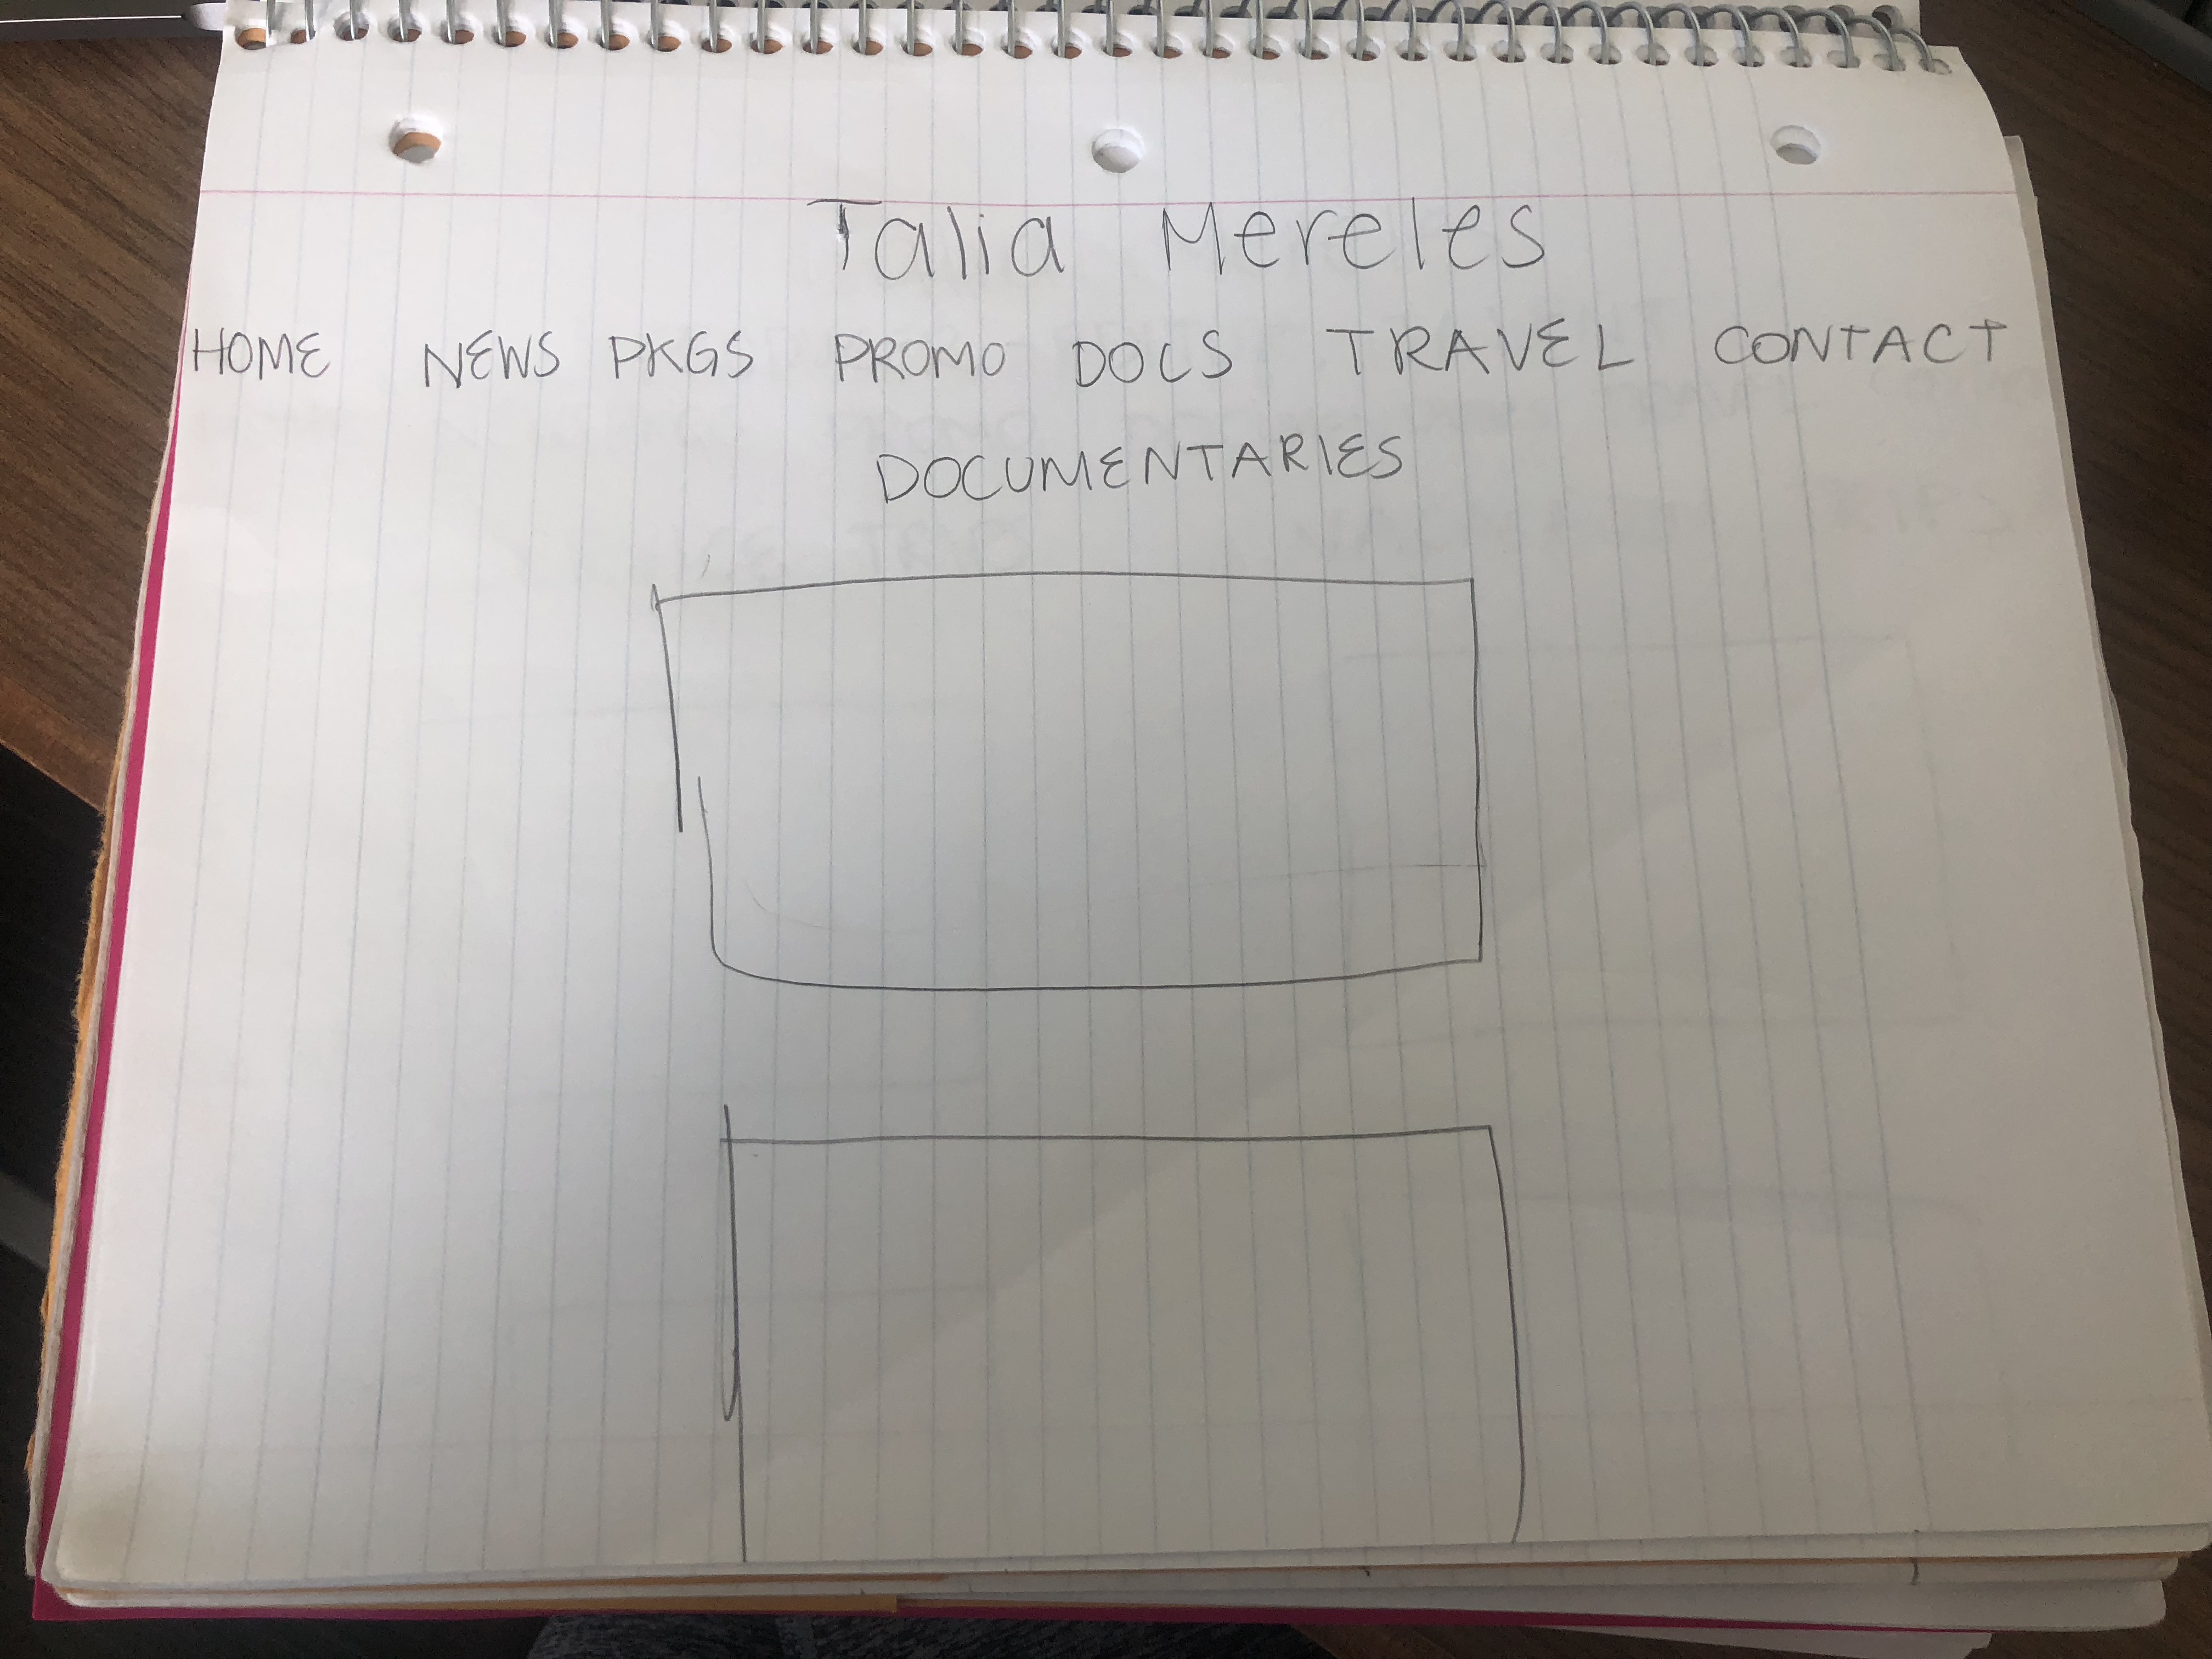 Talia Mereles
HOME NEWS PKGS PROMO DOCS TRAVEL CONTACT
DOCUMENTARIES